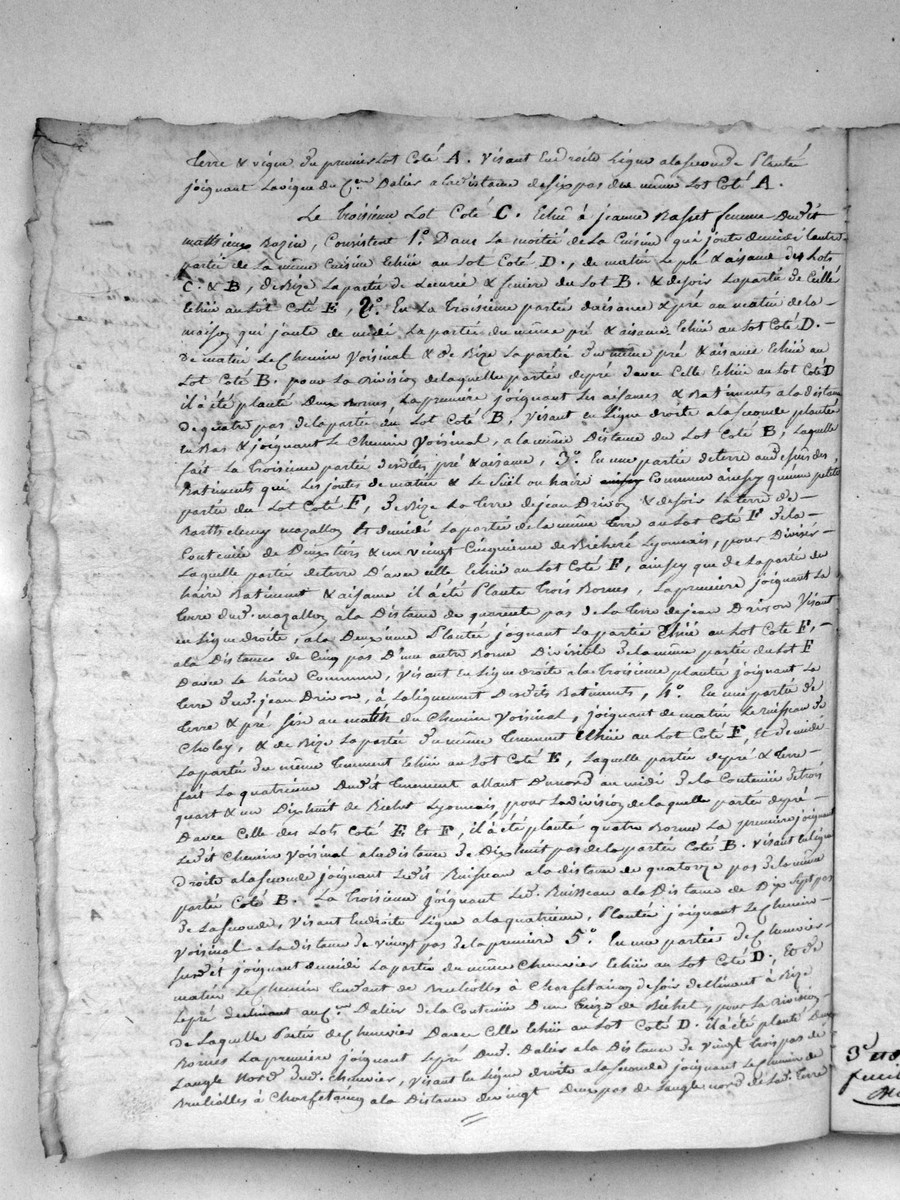 terre & vigne du premier Lot Coté A. Visant en droite Ligne a la seconde Planté
joignant La vigne du C.en Dalier a la distance de six pas du même Lot Coté A.
Le troisieme Lot Coté C. Echû à jeanne Basset femme Dudit
mathieu Bazin, Consistent 1.° Dans La moitié de La Cuisine qui joute de midi L'autre
partie de La même Cuisine Echüe au Lot Coté D., de matin Le pré & aisance des Lots
C. & B, de Bize La partie de Lecurie & feniere du Lot B. & de soir La partie de Cellé
Echüe au Lot Coté E, 2.° En La Troisieme partie d'aisance & pré au matin de la
maison qui joute de midi La partie du même pré & aisance Echüe au Lot Coté D.
de matin Le Chemin Voisinal & de Bize La partie du même pré & aisance Echüe au
Lot Coté B. pour La Division de laquelle partie de pré d'avec Celle Echüe au Lot Coté D
il à été planté Deux Bornes, La premiere joignant Les aisances & Batiments a la distance
de quatre pas de la partie du Lot Coté B, Visant en Ligne droite a la seconde plantée
en Bas & joignant Le Chemin Voisinal, a la même Distance du Lot Coté B, Laquelle
fait La Troisieme partie desdits pré & aisance, 3.° En une partie de terre au dessus des
Batiments qui Les joutes de matin & Le Suël ou haire Commun ainsy qu'une petite
partie du Lot Coté F, de Bize La Terre de jean Drivon & de soir La terre de
Barthelemy mazallon Et de midi La partie de la même Terre au Lot Coté F de la
Contenüe de Deux tiers & un vingt Cinquieme de Bicheré Lyonnais, pour Diviser
Laquelle partie de terre D'avec celle Echüe au Lot Coté F, ainsy que de La partie du
haire Batiment & aisance il à été Planté Trois Bornes, La premiere joignant La
terre dud. mazallon a la Distance de quarente pas de La Terre de jean Drivon Visant
en Ligne droite, a la Deuxieme Plantée joignant La partie Echüe au Lot Coté F,
a la Distance de Cinq pas D'une autre Borne Divisible de la même partie du Lot F
Davec Le haire Commun, Visant en Ligne droite a la Troisieme plantée joignant La
Terre dud. jean Drivon, à Lalignement Desdits Batiments, 4.° En une partie de
Terre & pré sise au matin du Chemin Voisinal, joignant de matin Le ruisseau de
Cholay, & de Bize La partie du même Tenement Echüe au Lot Coté F Et de midi
La partie du même Tenement Echüe au Lot Coté E, Laquelle partie de pré & Terre
fait La quatrieme Dudit Tenement allant Du nord au midi de la Contenüe de trois
quart & un Dixhuit de Bichet Lyonnais, pour La division de la quelle partie de pré
Davec Celle des Lots Coté E Et F, il à été planté quatre Borne La premiere joignant
Ledit Chemin Voisinal a la distance de Dixhuit pas de la partie Coté B. Visant en Ligne
droite a la seconde joignant Ledit Ruisseau a la distance de quatorze pas de la même
partie Coté B. La Troisieme joignant Led. Ruisseau a la Distance de Dix Sept pas
de La seconde, Visant En droite Ligne a la quatrieme, Plantée joignant Le Chemin
Voisinal a La distance de vingt pas de la premiere 5.° En une partie de Chenevier
susdit joignant de midi La partie du même Chenevier Echüe au Lot Coté D, Et de
matin Le Chemin Tendant de Brulioles à Charfetain, de soir declinant à Bize
Le pré declinant au C.en Dalier de la Contenüe D'un Onze de Bichet, pour La Division
de Laquelle Partie de Chenevier Davec Celle Echüe au Lot Coté D. il à été planté Deux
Bornes La premiere joignant Le pré dud. Dalier a la Distance de vingt trois pas de
Langle nord dud. Chenevier, Visant en Ligne droite a la seconde joignant Le Chemin de
Brulioles à Charfetain a la Distance de vingt Deux pas de Langle nord de lad. Terre
3.e